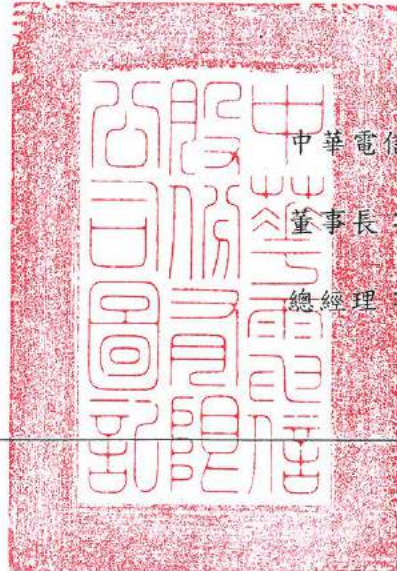 中華電信
股份有限
公司圖記
中華電信
董事長
總經理